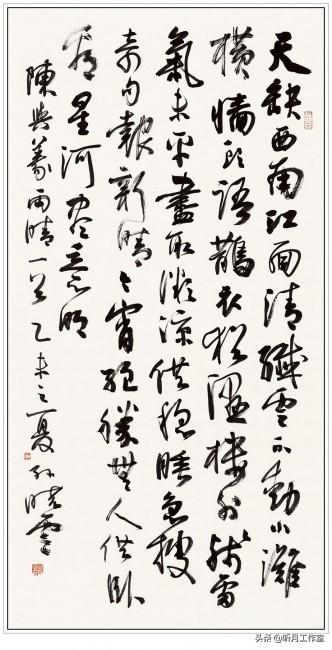 天缺西南江面清纖雲不動小灘
橫牆頭語鵲衣猶濕樓外殘雷
氣未平盡取微涼供穩睡急搜
奇句報新晴今宵絕勝無人供卧
看星河盡意明
陳與義雨晴一首乙未之夏孫曉雲
头条 @听月工作室